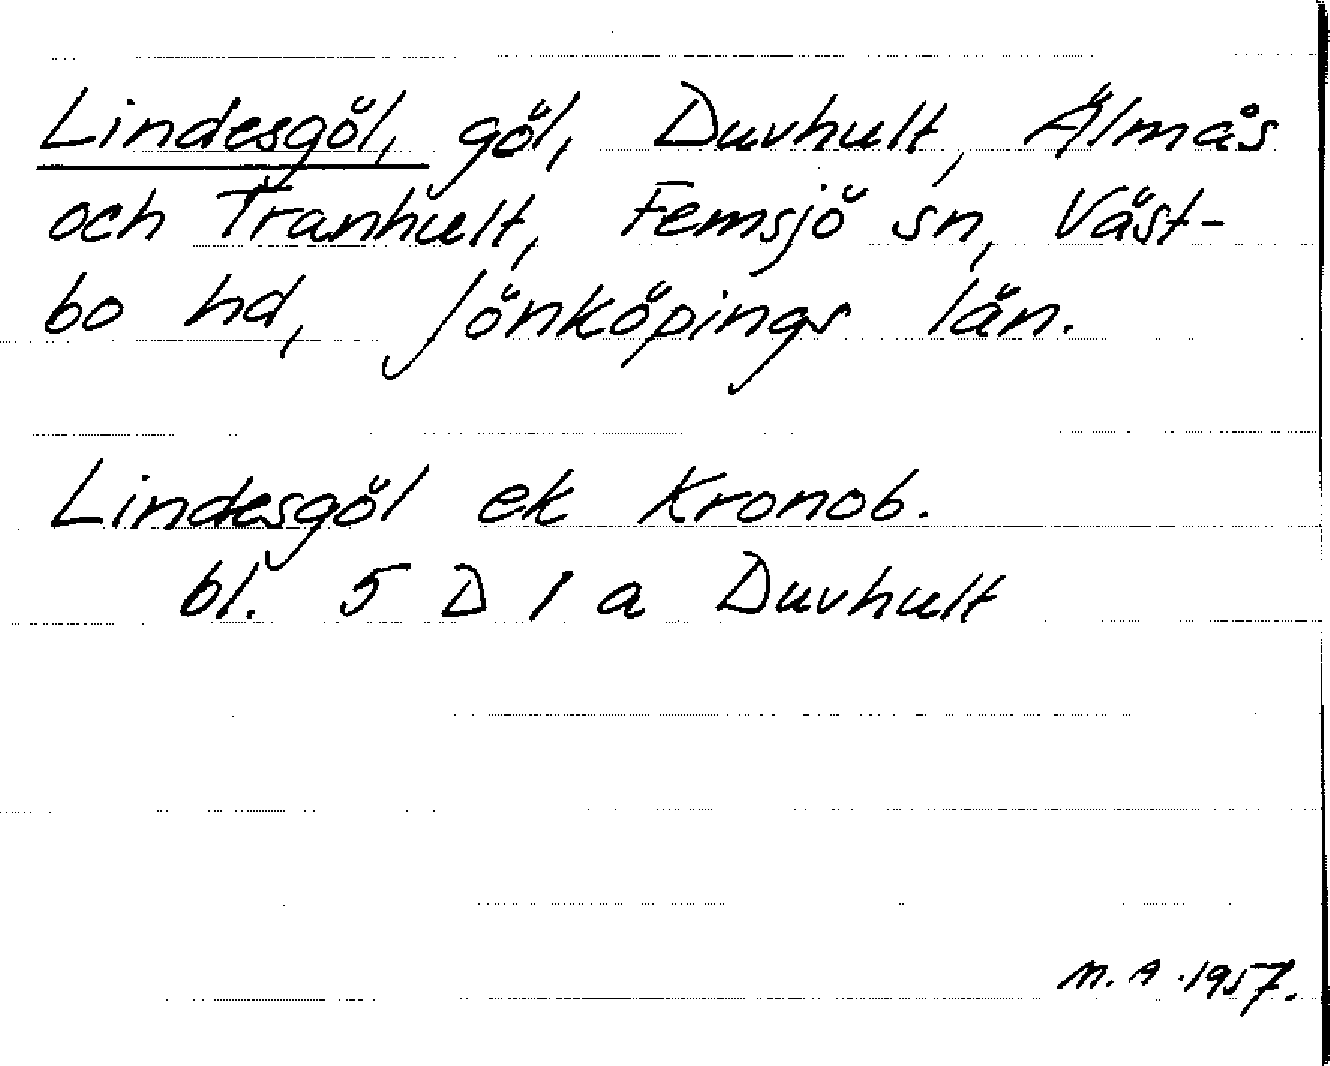 Lindesgöl, göl, Duvhult, Älmås
och Tranhult, Femsjö sn, Väst-
bo hd, Jönköpings län.
Lindesgöl ek Kronob.
bl. 5 D 1 a Duvhult
M. A. 1957.